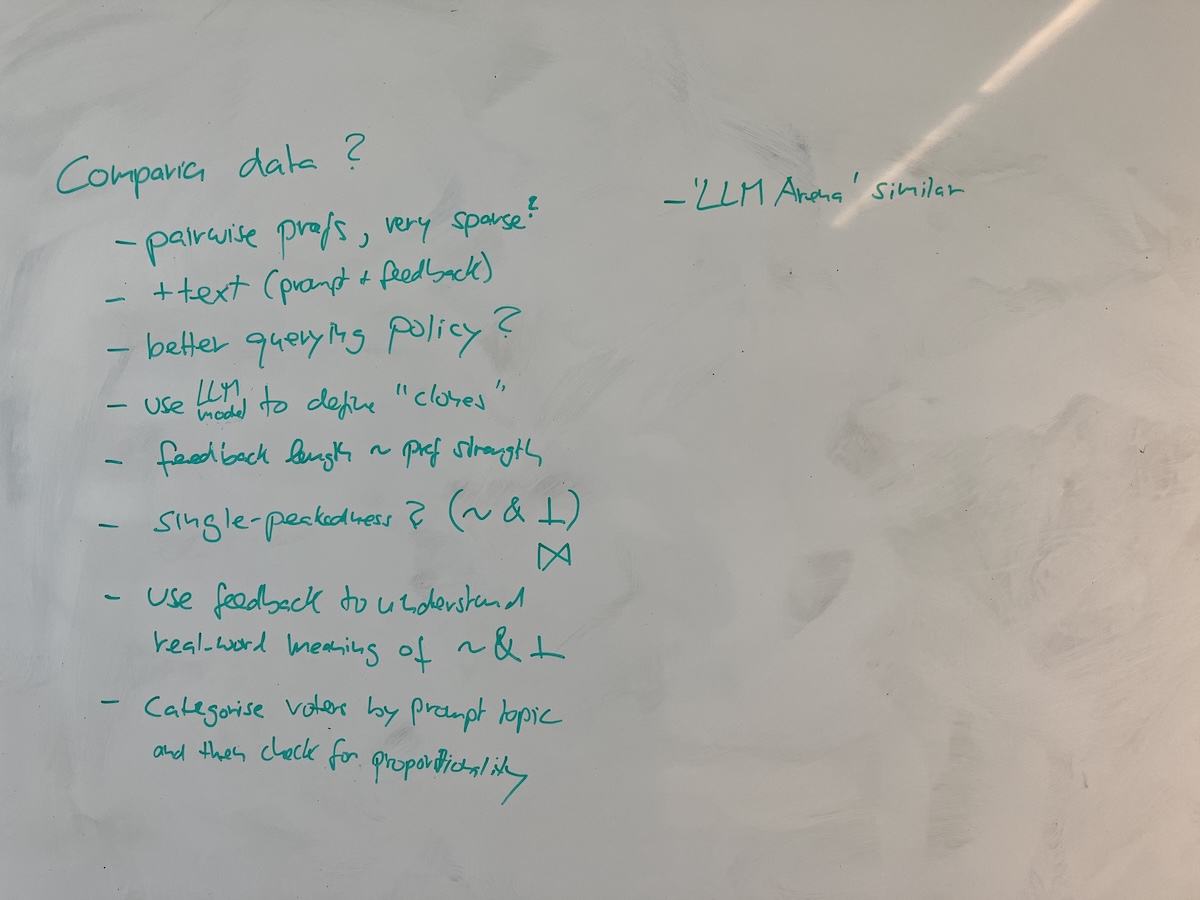 Comparia data ?
- pairwise prefs, very sparse?
- + text (prompt + feedback)
- better querying policy ?
- use LLM model to define "clones"
- feedback length ~ pref strength
- single-peakedness ? (~ & ⊥)
⋈
- use feedback to understand
real-word meaning of ~ & ⊥
- Categorise voters by prompt topic
and then check for proportionality
- 'LLM Arena' similar